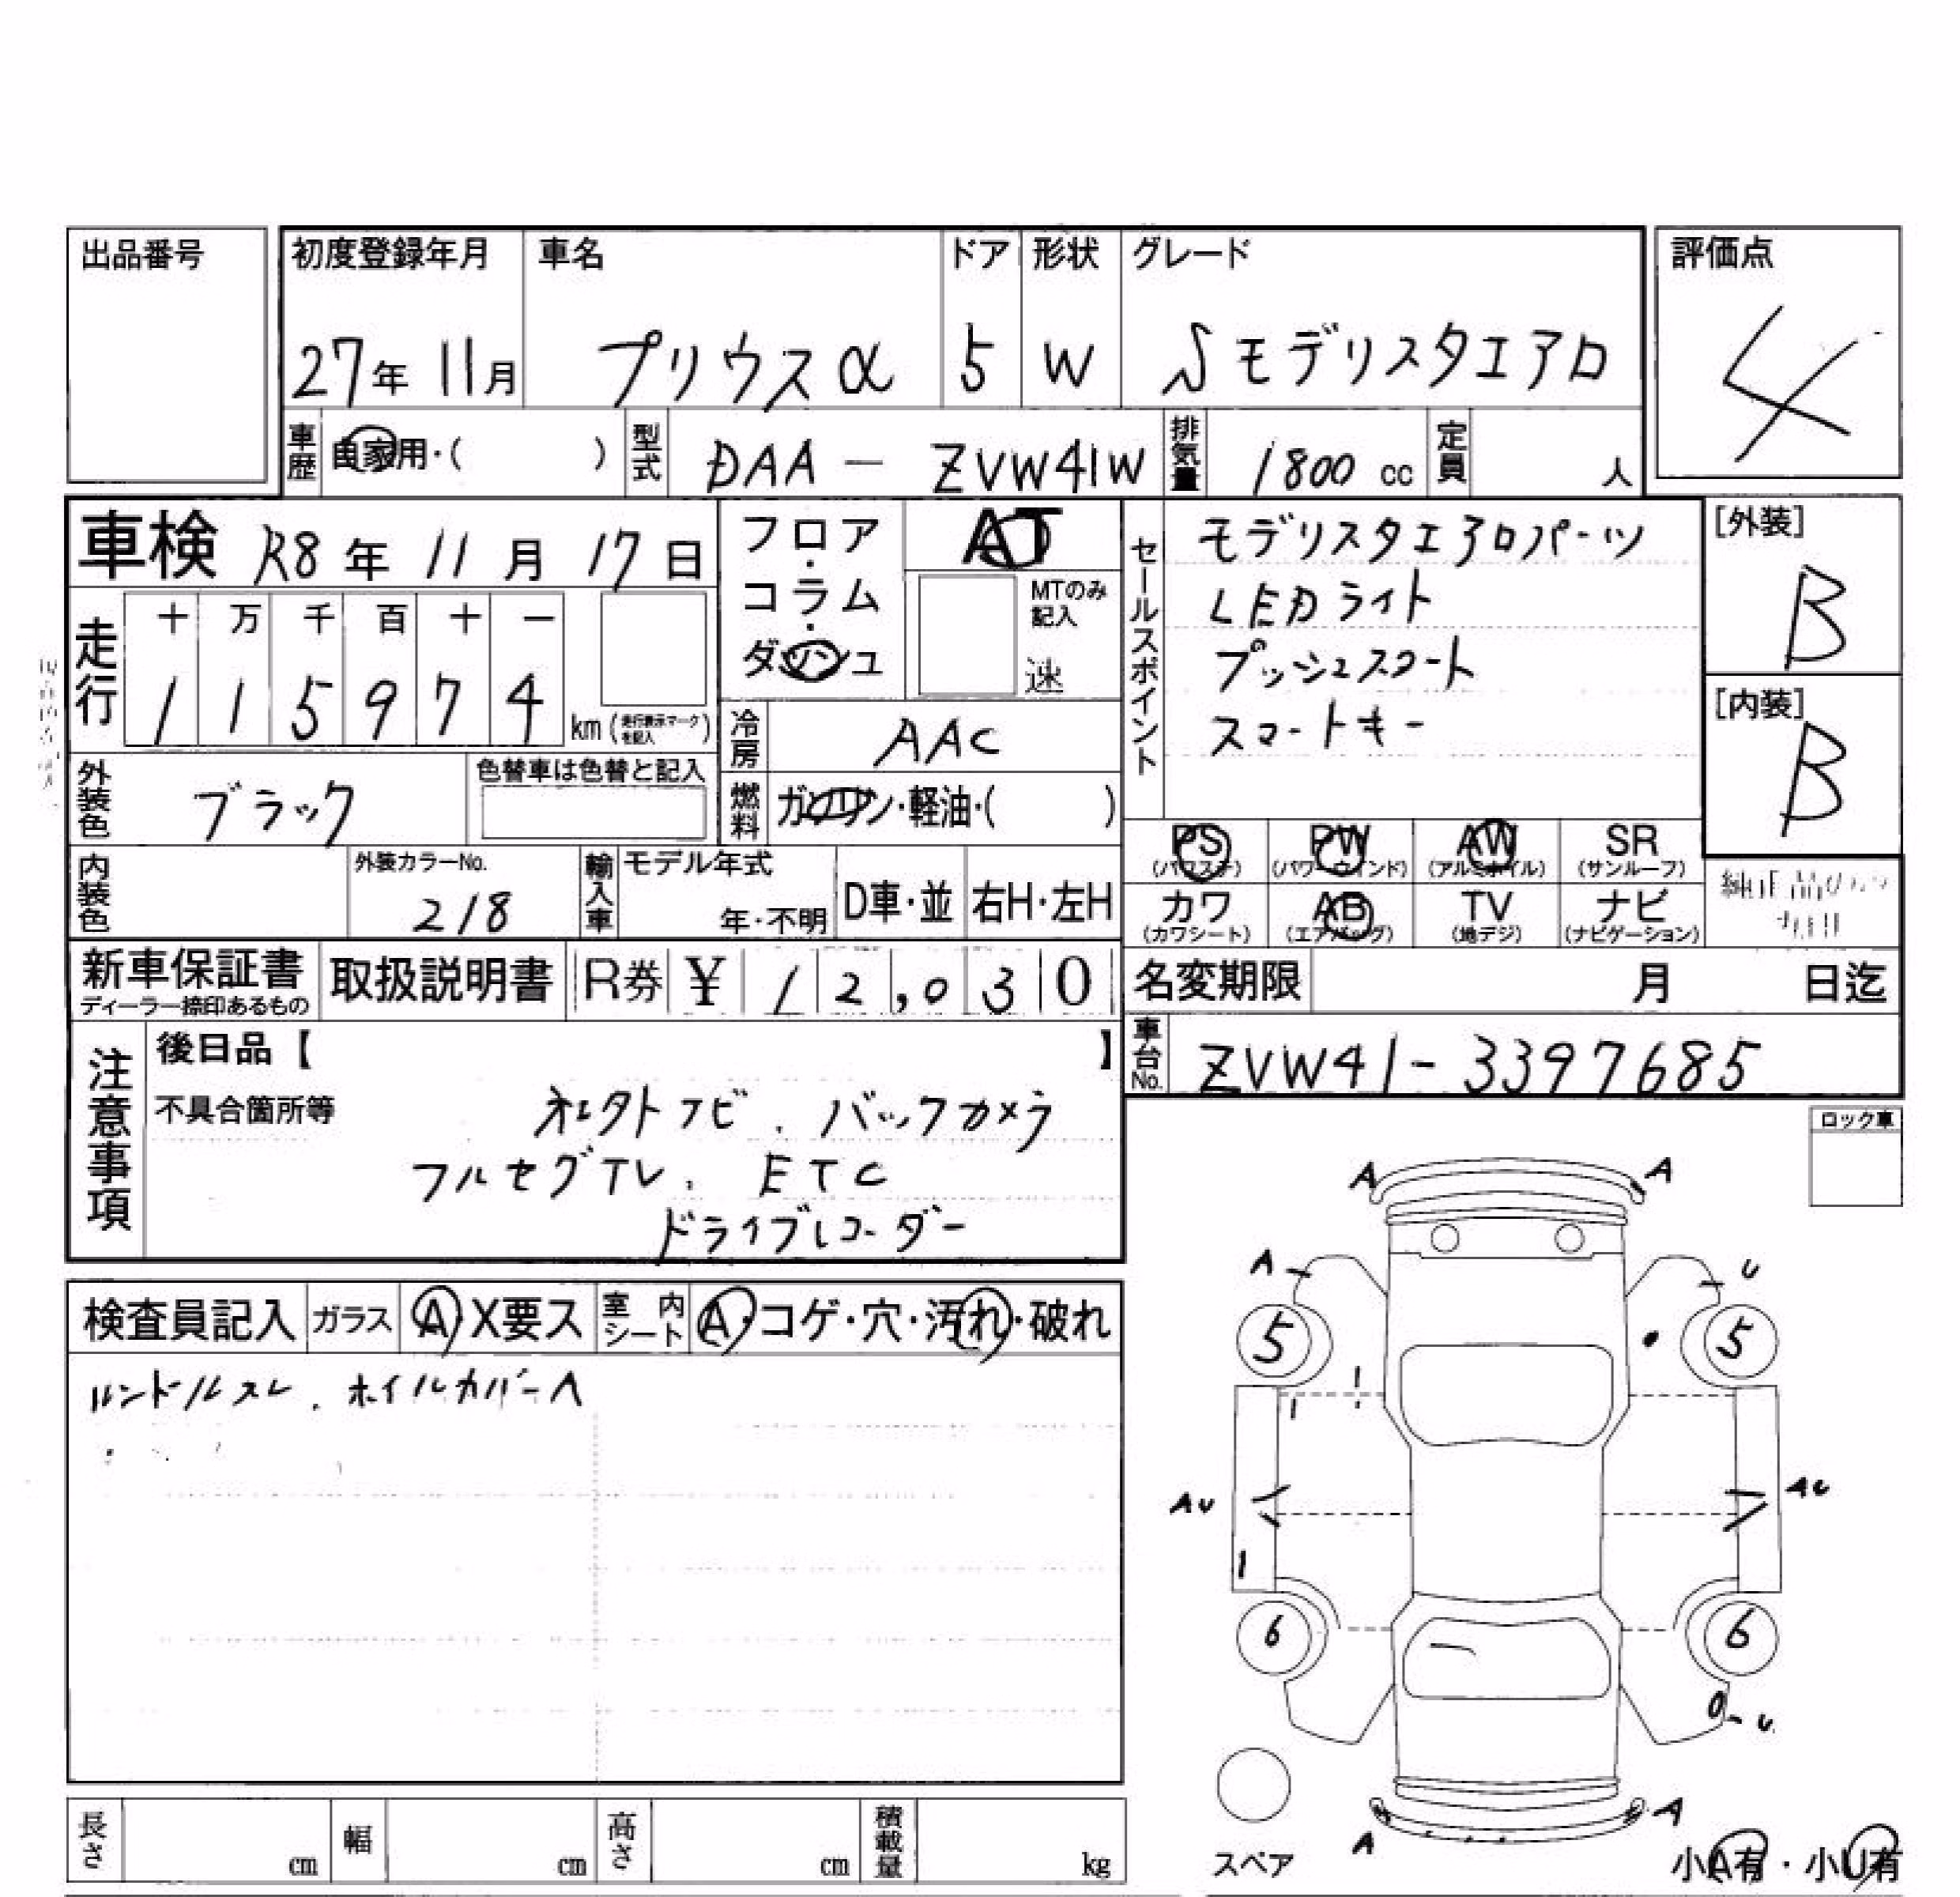 出品番号
初度登録年月 車名 ドア 形状 グレード 評価点
27年 11月 プリウスα 5 W Sモデリスタエアロ 4
車歴 自家用・( ) 型式 DAA － ZVW41W 排気量 1800 cc 定員 人
車検 R8年 11月 17日
フロア・コラム・ダッシュ
AT
MTのみ記入
速
セールスポイント
モデリスタエアロパーツ
LEDライト
プッシュスタート
スマートキー
[外装]
B
[内装]
B
走行
十 万 千 百 十 一
1 1 5 9 7 4 km (走行表示マークを記入)
冷房 AAC
外装色 ブラック 色替車は色替と記入
燃料 ガソリン・軽油・( )
PS (パワステ) PW (パワーウィンド) AW (アルミホイル) SR (サンルーフ)
カワ (カワシート) AB (エアバッグ) TV (地デジ) ナビ (ナビゲーション)
内装色 外装カラーNo. 218 輸入車 モデル年式 年・不明 D車・並 右H・左H
新車保証書 ディーラー捺印あるもの 取扱説明書 R券 ¥ 12,030
名変期限 月 日迄
車台No. ZVW41-3397685
注意事項
後日品【 】
不具合箇所等
バックカメラ
フルセグTV. ETC
ドライブレコーダー
ロック車
検査員記入 ガラス A X要ス 室内シート A・コゲ・穴・汚れ・破れ
ハンドルスレ. ホイルカバーA
A A
A U
5 5
AU AU
6 6
U
A
A
スペア
小A有・小U有
長さ cm 幅 cm 高さ cm 積載量 kg